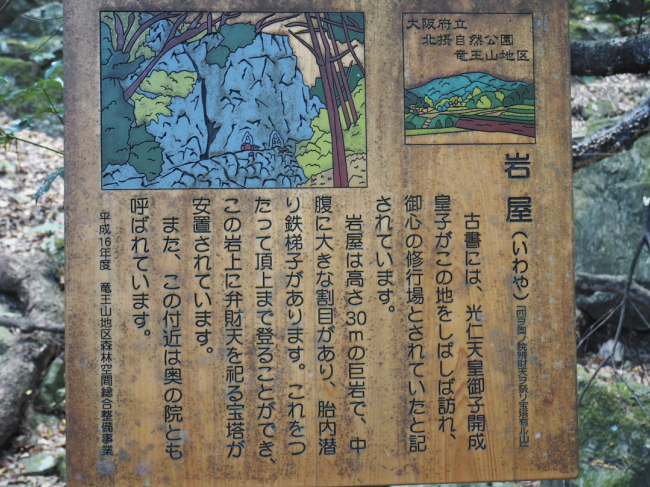 大阪府立
北摂自然公園
竜王山地区
岩屋(いわや)
古書には、光仁天皇御子開成
皇子がこの地をしばしば訪れ、
御心の修行場とされていたと記
されています。
岩屋は高さ30mの巨岩で、中
腹に大きな割目があり、胎内潜
り鉄梯子があります。これをつ
たって頂上まで登ることができ、
この岩上に弁財天を祀る宝塔が
安置されています。
また、この付近は奥の院とも
呼ばれています。
平成16年度 竜王山地区森林空間総合整備事業